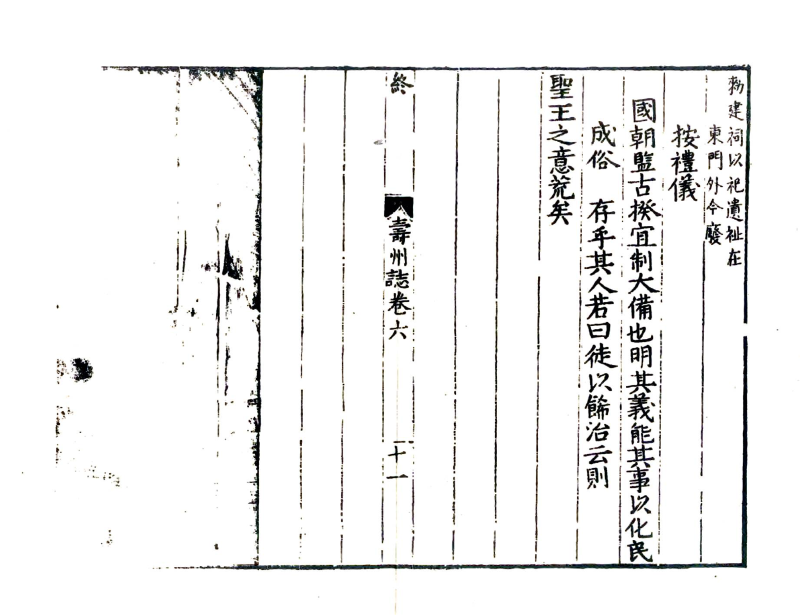 勑建祠以祀遺祉在
東門外今廢
按禮儀
國朝監古揆宜制大備也明其義能其事以化民
成俗　存乎其人若曰徒以餙治云則
聖王之意荒矣
終
壽州誌卷六
十一